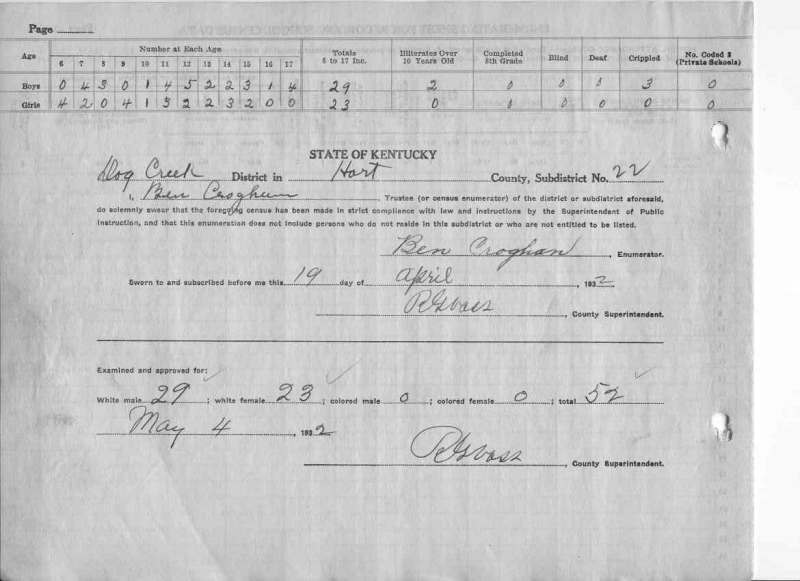 Page
Age Number at Each Age Totals 6 to 17 Inc. Illiterates Over 10 Years Old Completed 8th Grade Blind Deaf Crippled No. Coded 2 (Private Schools)
6 7 8 9 10 11 12 13 14 15 16 17
Boys 0 4 3 0 1 4 5 2 2 3 1 4 29 2 0 0 0 3 0
Girls 4 2 0 4 1 5 2 2 3 2 0 0 23 0 0 0 0 0 0
STATE OF KENTUCKY
Dog Creek District in Hart County, Subdistrict No. 22
I, Ben Croghan, Trustee (or census enumerator) of the district or subdistrict aforesaid,
do solemnly swear that the foregoing census has been made in strict compliance with law and instructions by the Superintendent of Public
Instruction, and that this enumeration does not include persons who do not reside in this subdistrict or who are not entitled to be listed.
Ben Croghan, Enumerator.
Sworn to and subscribed before me this 19 day of April, 1932
, County Superintendent.
Examined and approved for:
White male 29; white female 23; colored male 0; colored female 0; total 52
May 4, 1932
, County Superintendent.